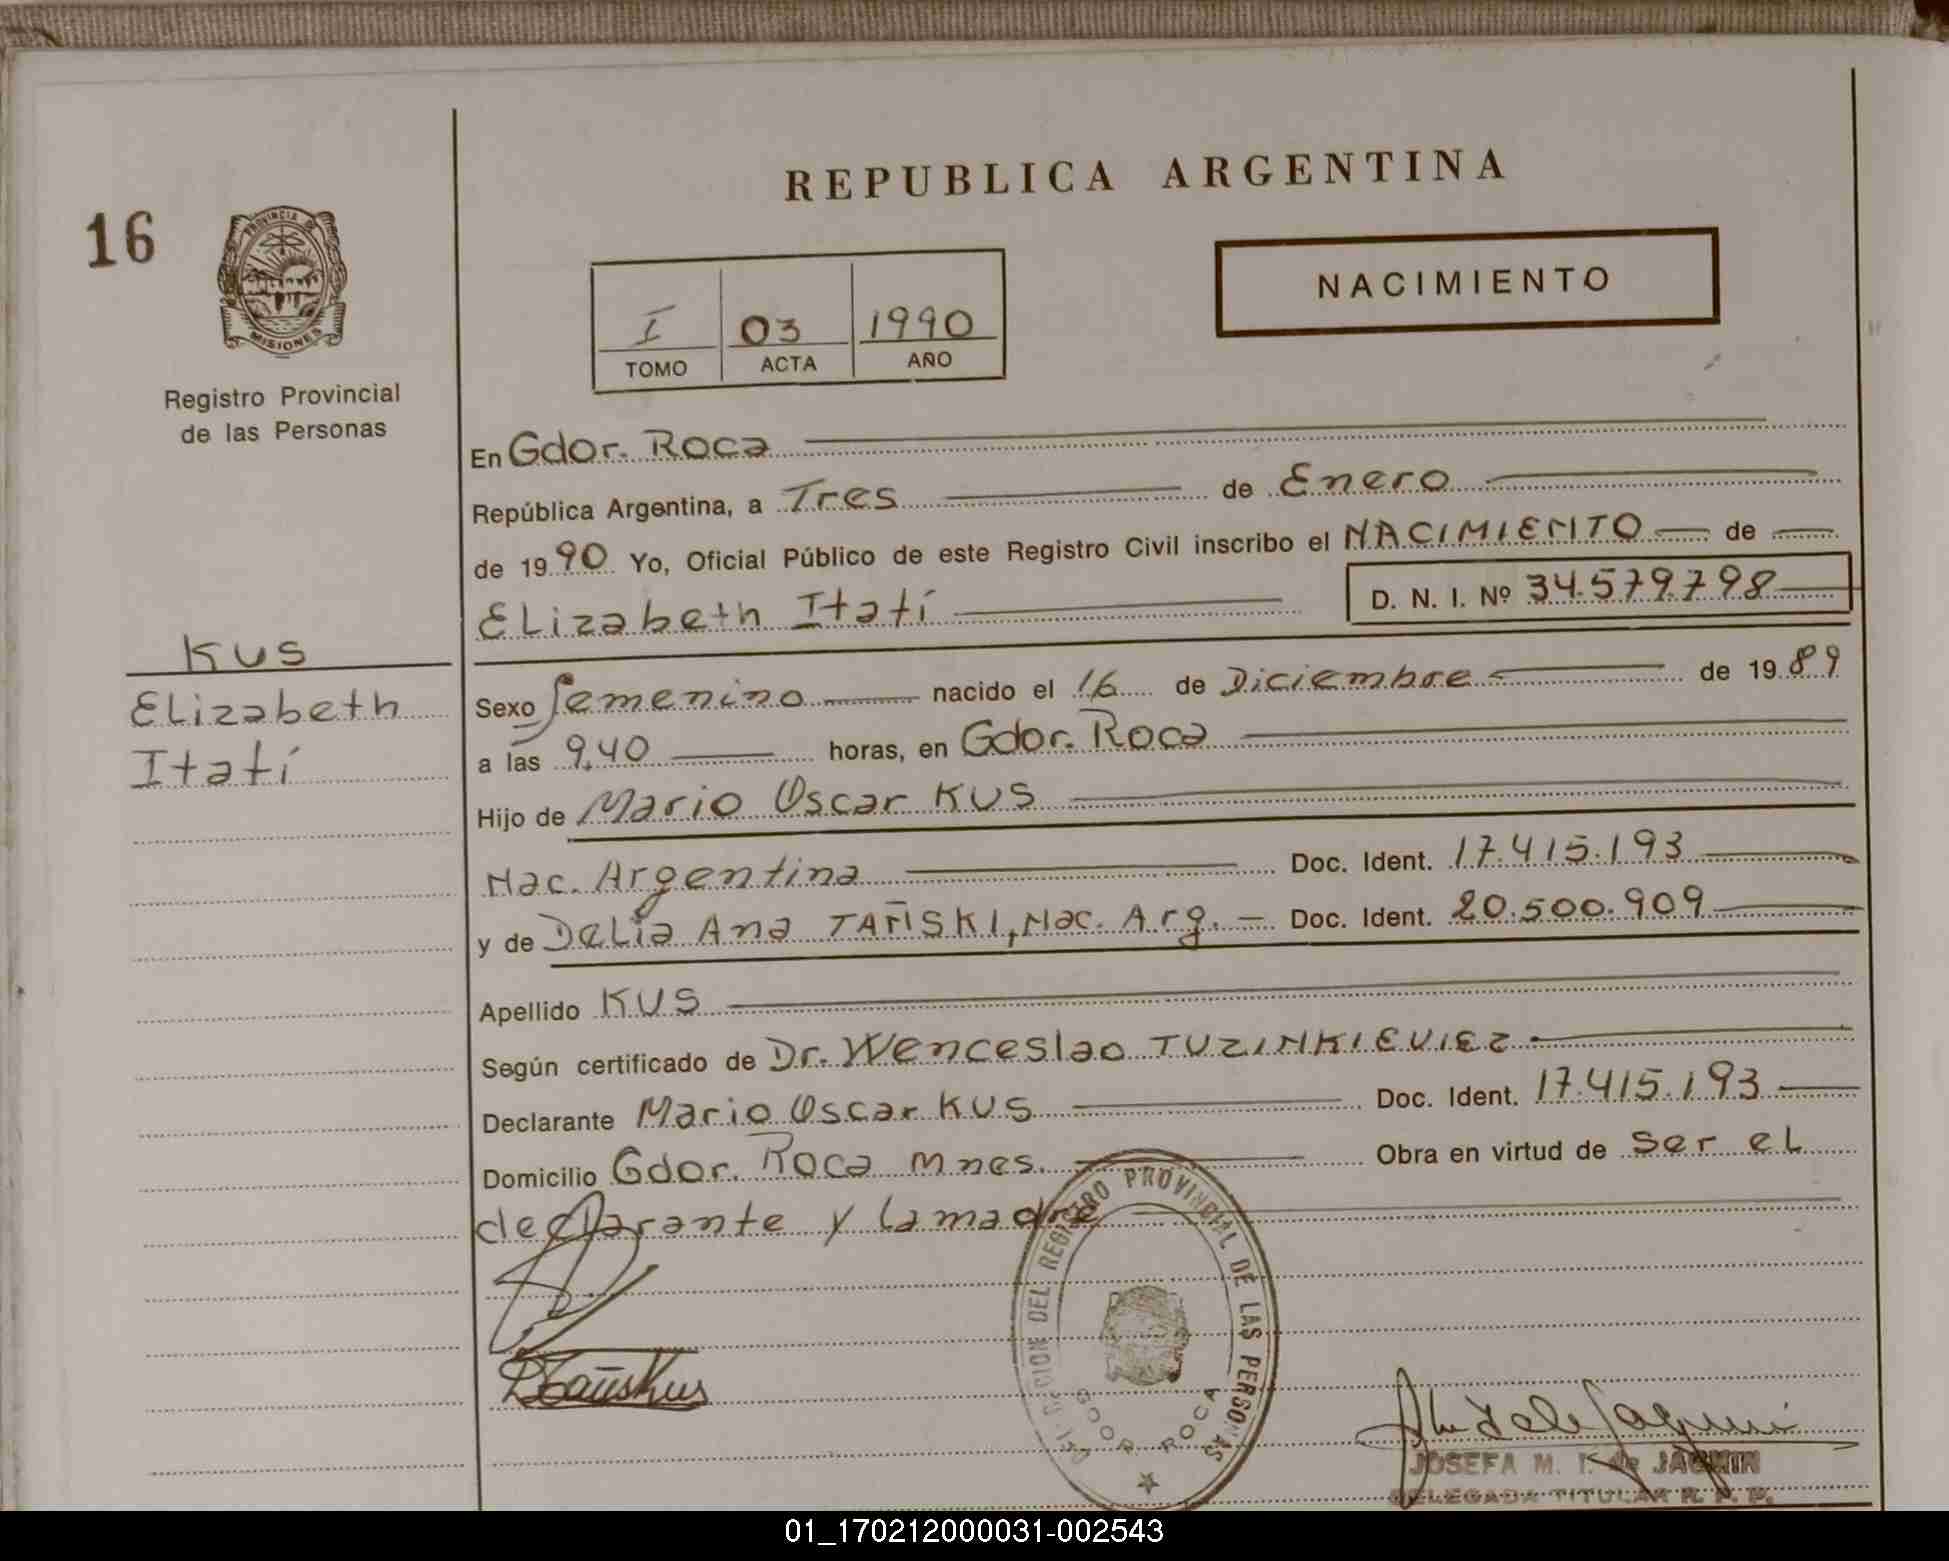 REPUBLICA ARGENTINA
16
PROVINCIA DE
MISIONES
NACIMIENTO
I 03 1990
TOMO ACTA AÑO
Registro Provincial
de las Personas
En Gdor. Roca
República Argentina, a Tres de Enero
de 1990 Yo, Oficial Público de este Registro Civil inscribo el NACIMIENTO de
Elizabeth Itatí D. N. I. Nº 34.579.798
KUS
Elizabeth
Itatí
Sexo femenino nacido el 16 de Diciembre de 1989
a las 9,40 horas, en Gdor. Roca
Hijo de Mario Oscar KUS
Nac. Argentina Doc. Ident. 17.415.193
y de Delia Ana TAÑSKI, Nac. Arg. Doc. Ident. 20.500.909
Apellido KUS
Según certificado de Dr. Wenceslao TUZINKIEVIEZ
Declarante Mario Oscar KUS Doc. Ident. 17.415.193
Domicilio Gdor. Roca Mnes. Obra en virtud de ser el
declarante y la madre
DIRECCION DEL REGISTRO PROVINCIAL DE LAS PERSONAS
GDOR ROCA
JOSEFA M. I. de
DELEGADA TITULAR R. P. P.
01_170212000031-002543